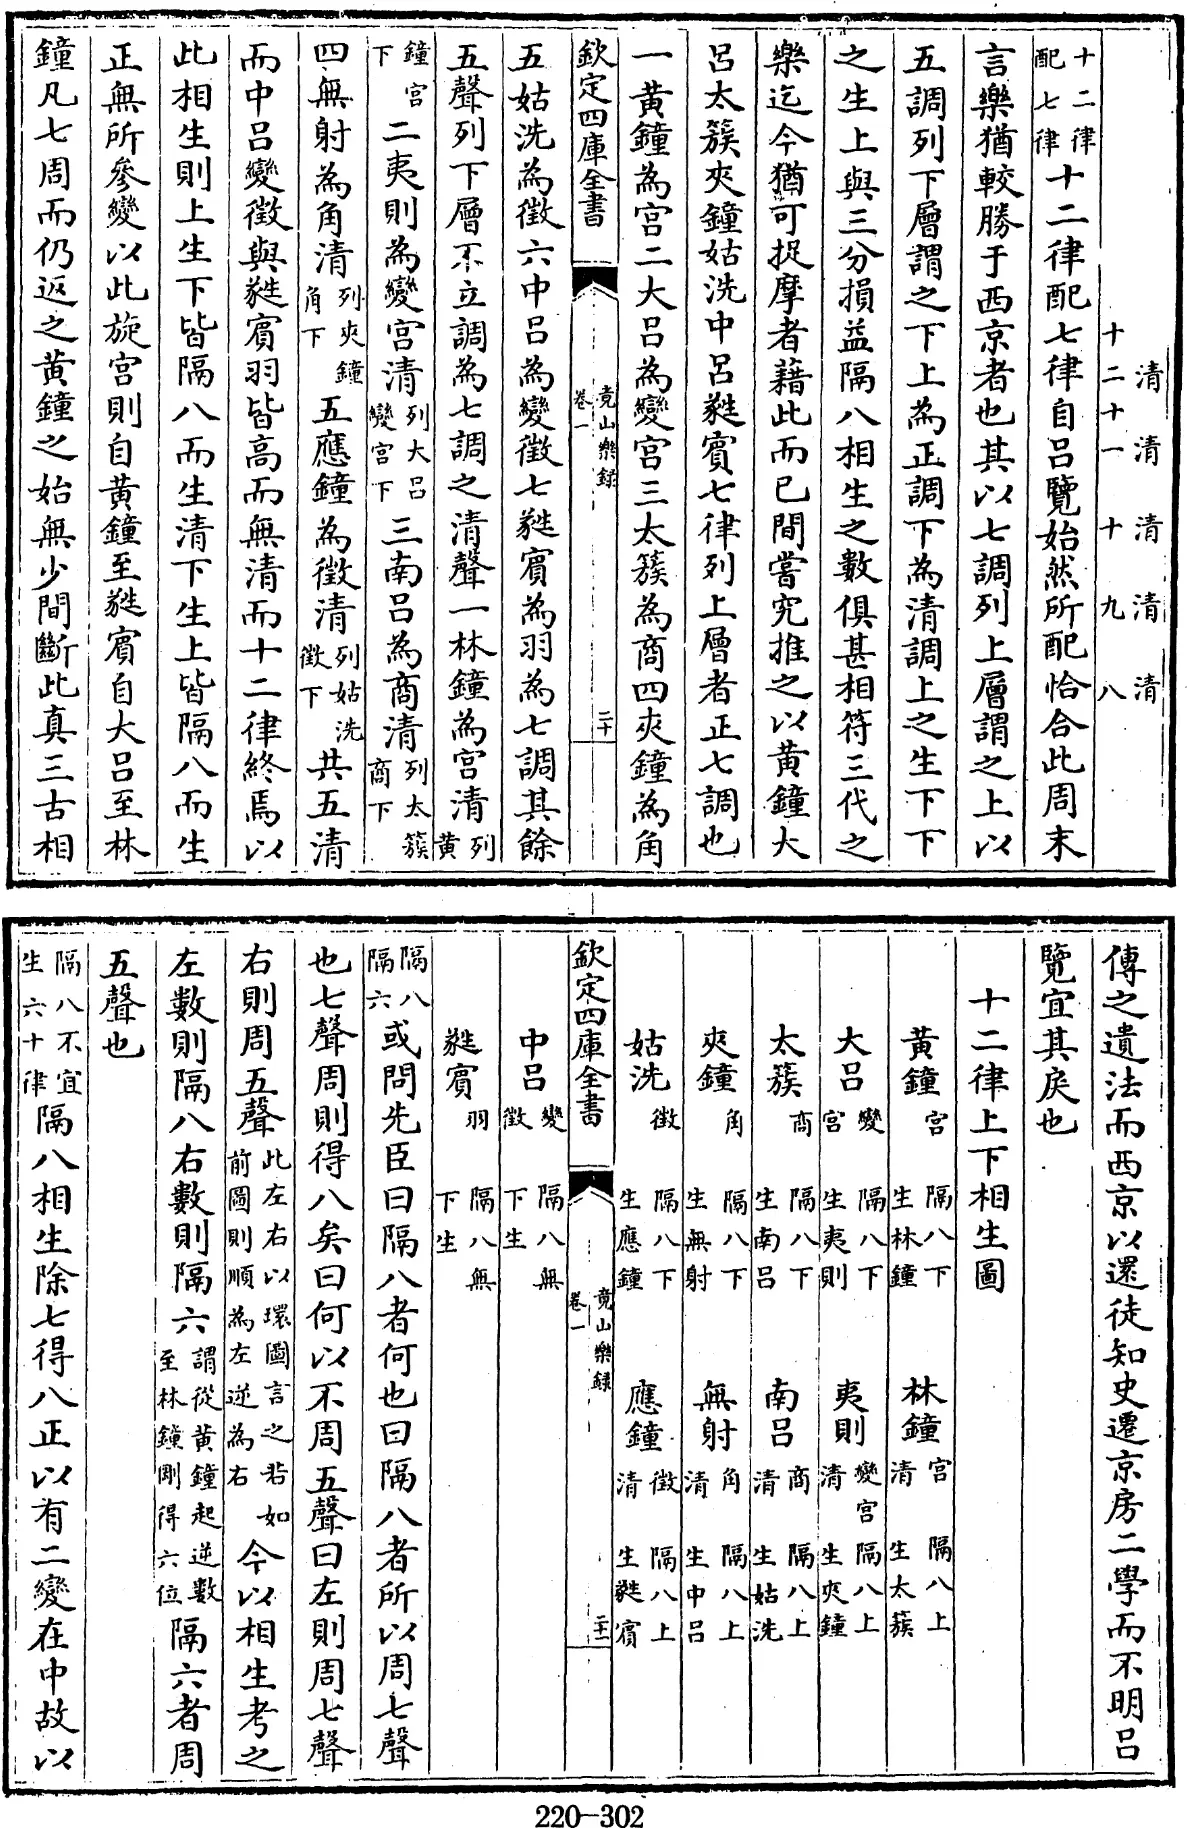 清　清　清　清　清
十二　十一　十　九　八
十二律配七律十二律配七律自吕覽始然所配恰合此周末
言樂猶較勝于西京者也其以七調列上層謂之上以
五調列下層謂之下上為正調下為清調上之生下下
之生上與三分損益隔八相生之數俱甚相符三代之
樂迄今猶可捉摩者藉此而已間嘗究推之以黄鐘大
吕太簇夾鐘姑洗中吕蕤賓七律列上層者正七調也
一黄鐘為宫二大吕為變宫三太簇為商四夾鐘為角
欽定四庫全書
竟山樂録
卷一
二十
五姑洗為徵六中吕為變徵七蕤賓為羽為七調其餘
五聲列下層不立調為七調之清聲一林鐘為宫清列黄
鐘宫下二夷則為變宫清列大吕變宫下三南吕為商清列太簇商下
四無射為角清列夾鐘角下五應鐘為徵清列姑洗徵下共五清
而中吕變徵與蕤賓羽皆高而無清而十二律終焉以
此相生則上生下皆隔八而生清下生上皆隔八而生
正無所參變以此旋宫則自黄鐘至蕤賓自大吕至林
鐘凡七周而仍返之黄鐘之始無少間斷此真三古相
傳之遺法而西京以還徒知史遷京房二學而不明吕
覽宜其戾也
十二律上下相生圖
黄鐘宫　隔八下生林鐘　林鐘宫清　隔八上生太簇
大吕變宫　隔八下生夷則　夷則變宫清　隔八上生夾鐘
太簇商　隔八下生南吕　南吕商清　隔八上生姑洗
夾鐘角　隔八下生無射　無射角清　隔八上生中吕
姑洗徵　隔八下生應鐘　應鐘徵清　隔八上生蕤賓
欽定四庫全書
竟山樂録
卷一
二十一
中吕變徵　隔八無下生
蕤賓羽　隔八無下生
隔八隔六或問先臣曰隔八者何也曰隔八者所以周七聲
也七聲周則得八矣曰何以不周五聲曰左則周七聲
右則周五聲此左右以環圖言之若如前圖則順為左逆為右今以相生考之
左數則隔八右數則隔六謂從黄鐘起逆數至林鐘剛得六位隔六者周
五聲也
隔八不宜生六十律隔八相生除七得八正以有二變在中故以
220-302